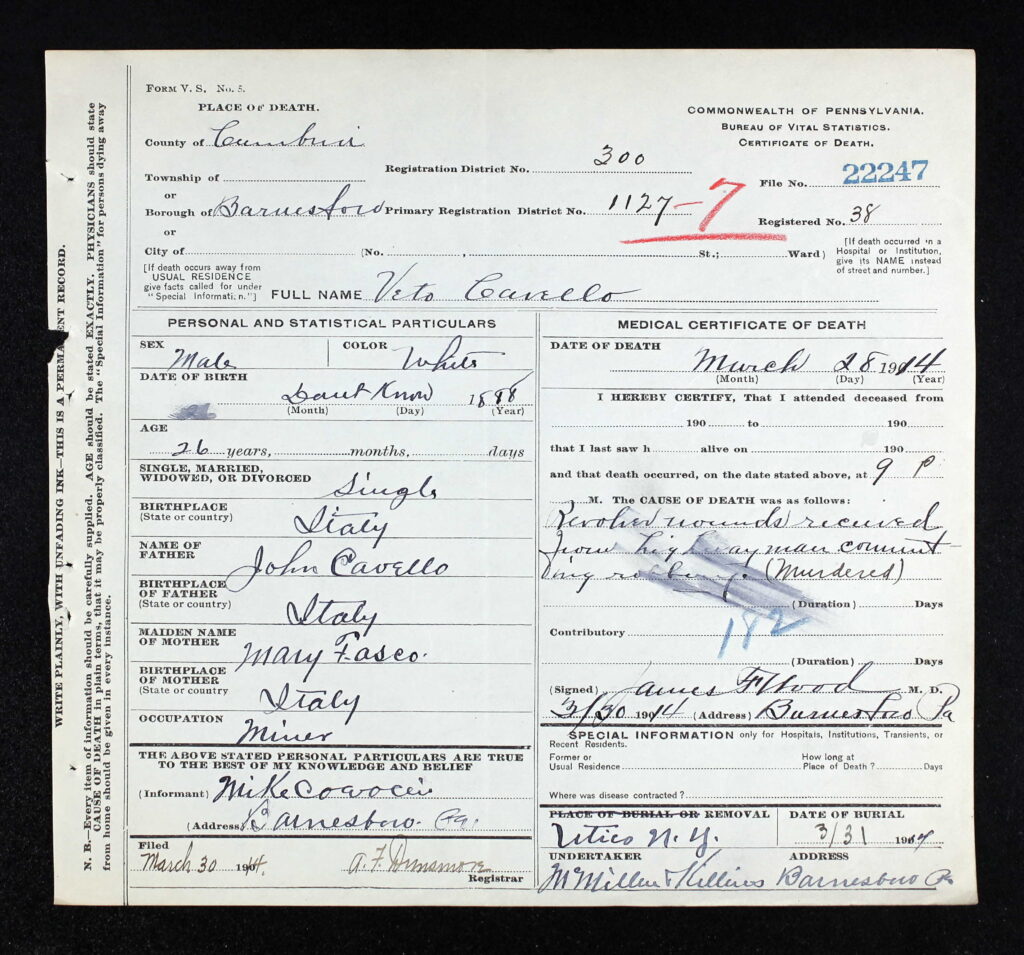 FORM V. S. No. 5.
PLACE OF DEATH.
County of
Township of
or
Borough of Barnesboro
or
City of (No. , St.; Ward)
[If death occurs away from
USUAL RESIDENCE
give facts called for under
"Special Information"]
Registration District No. 300
Primary Registration District No. 1127 - 7
COMMONWEALTH OF PENNSYLVANIA.
BUREAU OF VITAL STATISTICS.
CERTIFICATE OF DEATH.
File No. 22247
Registered No. 38
[If death occurred in a
Hospital or Institution,
give its NAME instead
of street and number.]
FULL NAME Veto Cavello
PERSONAL AND STATISTICAL PARTICULARS
SEX Male
COLOR White
DATE OF BIRTH
Dont Know 1888
(Month) (Day) (Year)
AGE
26 years, months, days
SINGLE, MARRIED,
WIDOWED, OR DIVORCED Single
BIRTHPLACE
(State or country) Italy
NAME OF
FATHER John Cavello
BIRTHPLACE
OF FATHER
(State or country) Italy
MAIDEN NAME
OF MOTHER Mary Fasco.
BIRTHPLACE
OF MOTHER
(State or country) Italy
OCCUPATION
Miner
THE ABOVE STATED PERSONAL PARTICULARS ARE TRUE
TO THE BEST OF MY KNOWLEDGE AND BELIEF
(Informant) Mike
(Address) Barnesboro Pa.
Filed
March 30 1914. A. F. Dunsmore
Registrar
MEDICAL CERTIFICATE OF DEATH
DATE OF DEATH
March 28 1914
(Month) (Day) (Year)
I HEREBY CERTIFY, That I attended deceased from
190 to 190
that I last saw h alive on 190
and that death occurred, on the date stated above, at 9 P
M. The CAUSE OF DEATH was as follows:
Revolver wounds received
from highwayman commit-
ing robbery. (Murdered)
(Duration) Days
182
Contributory
(Duration) Days
(Signed) James F Wood M. D.
3/30 1914 (Address) Barnesboro Pa
SPECIAL INFORMATION only for Hospitals, Institutions, Transients, or
Recent Residents.
Former or
Usual Residence
How long at
Place of Death? Days
Where was disease contracted?
PLACE OF BURIAL OR REMOVAL
Utica N. Y.
DATE OF BURIAL
3/31 1914
UNDERTAKER
McMillen &
ADDRESS
Barnesboro Pa
WRITE PLAINLY, WITH UNFADING INK—THIS IS A PERMANENT RECORD.
N. B.—Every item of information should be carefully supplied. AGE should be stated EXACTLY. PHYSICIANS should state
CAUSE OF DEATH in plain terms, that it may be properly classified. The "Special Information" for persons dying away
from home should be given in every instance.